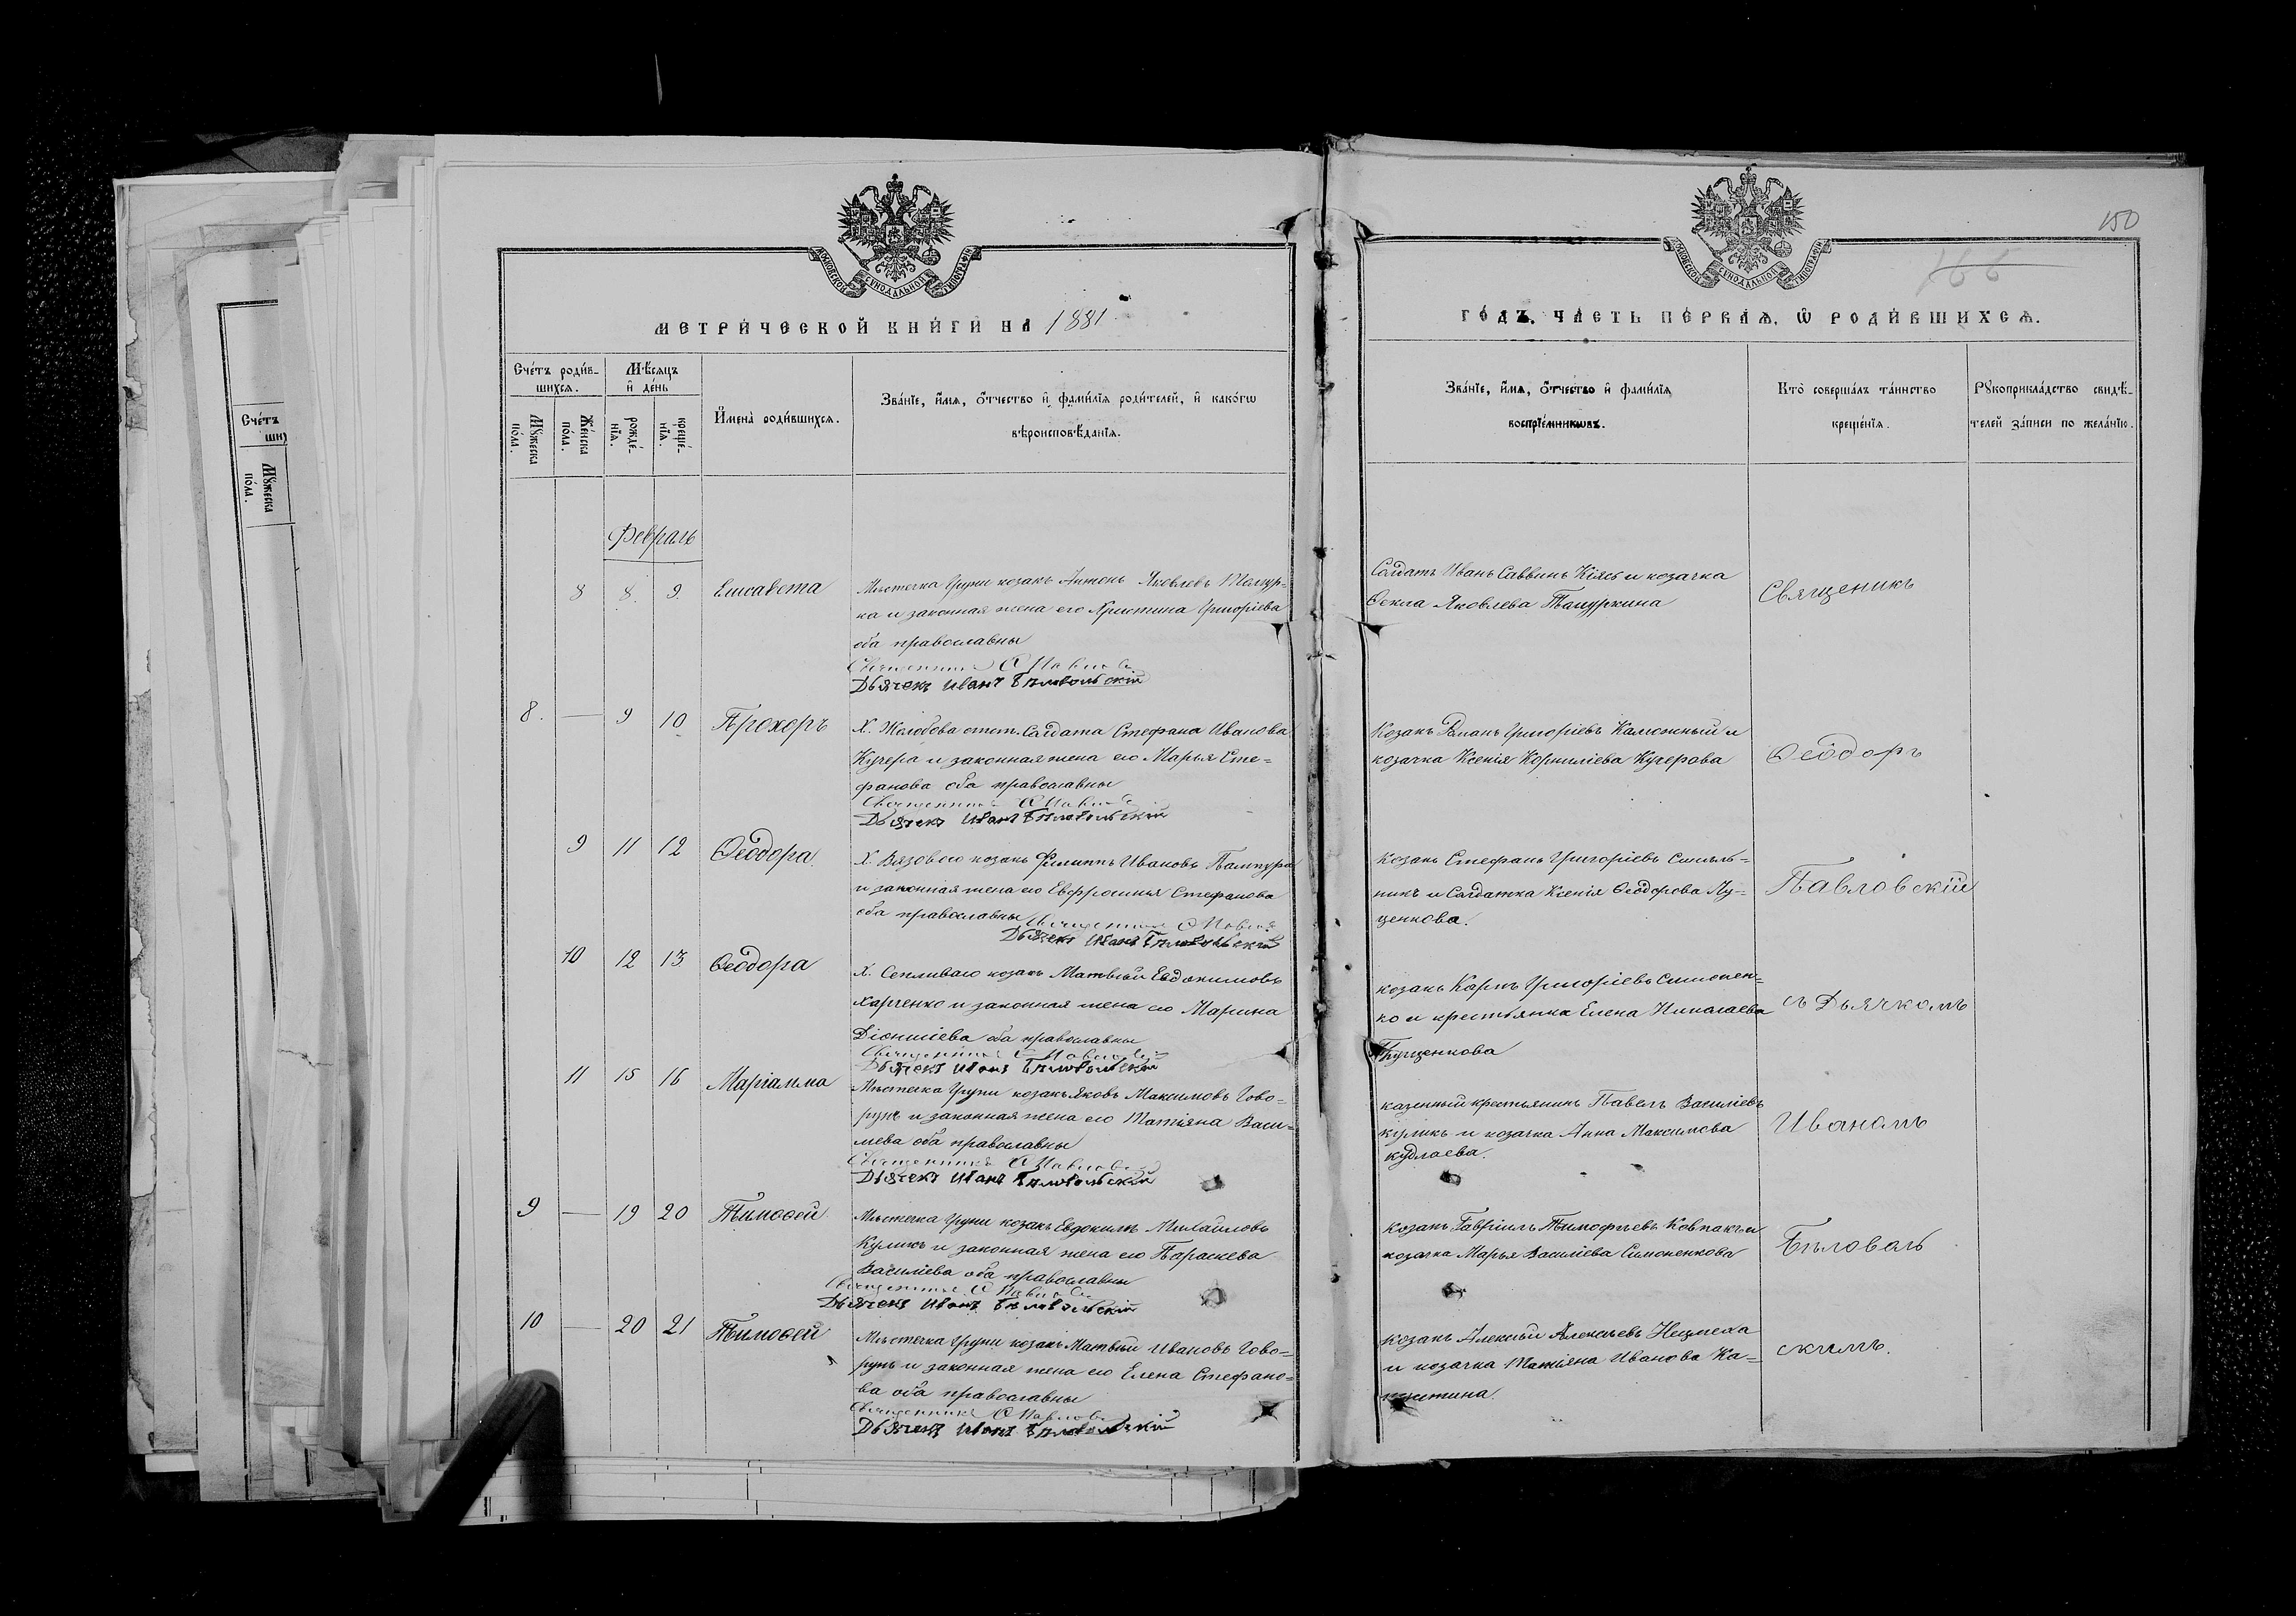 150
166
МЕТРИ́ЧЕСКОЙ КНИ́ГИ НА 1881
ГО́ДЪ, ЧА́СТЬ ПЕ́РВАѦ, Ѡ РОДИ́ВШИХСѦ.
Сче́тъ роди́в-
шихсѧ.
Мѣ́сѧцъ
и҆ де́нь
Мꙋ́жеска
по́ла.
Же́нска
по́ла.
рожде́-
нїѧ.
креще́-
нїѧ.
И҆мена̀ роди́вшихсѧ.
Зва́нїе, и҆́мѧ, ѻ҆́тчество и҆ фами́лїѧ роди́телей, и҆ како́гѡ
вѣроисповѣ́данїѧ.
Зва́нїе, и҆́мѧ, ѻ҆́тчество и҆ фами́лїѧ
воспрїе́мникѡвъ.
Кто̀ соверша́лъ та́инство
креще́нїѧ.
Рꙋкоприкла́дство свидѣ́-
телей за́писи по жела́нїю.
Февраль
8 8 9 Елисавета
Мѣстечка Груни козакъ Антонъ Яковлевъ
ка и законная жена его Христина Григоріева
оба православны
Священникъ
Дьячекъ Иванъ Бѣловольскій
Солдатъ Иванъ Саввинъ и козачка
Ѳекла Яковлева
Священикъ
8. — 9 10 Прохоръ
Х. Жолобова отст. Солдата Стефана Иванова
Кучера и законная жена его Марья Сте-
фанова оба православны
Священникъ
Дьячекъ Иванъ Бѣловольскій
Козакъ Романъ Григоріевъ Каложный и
козачка Ксенія Корниліева Кучерова
Ѳеодоръ
9 11 12 Ѳеодора
Х. Вязоваго козакъ Филиппъ Ивановъ Пампура
и законная жена его Евфросинья Стефанова
оба православны Священникъ
Дьячекъ Иванъ Бѣловольскій
Козакъ Стефанъ Григоріевъ
никъ и Солдатка Ксенія Ѳеодорова Лу-
ценкова.
Павловскій
10 12 13 Ѳеодора
Х. козакъ Матвѣй Евдокимовъ
Харченко и законная жена его Марина
Діонисіева оба православны
Священникъ
Дьячекъ Иванъ Бѣловольскій
козакъ Карпъ Григоріевъ Симонен-
ко и крестьянка Елена Николаева
съ Дьячкомъ
11 15 16 Маріамма
Мѣстечка Груни козакъ Яковъ Максимовъ Гово-
рунъ и законная жена его Татіана Васи-
лева оба православны
Священникъ
Дьячекъ Иванъ Бѣловольскій
казенный крестьянинъ Павелъ Василіевъ
Куликъ и козачка Анна Максимова
Кудлаева.
Иваномъ
9 — 19 20 Тимоѳей
Мѣстечка Груни козакъ Евдокимъ Михайловъ
Куликъ и законная жена его Параскева
Василіева оба православны
Священникъ
Дьячекъ Иванъ Бѣловольскій
Козакъ Гавріилъ Тимофѣевъ Ковпакъ и
козачка Марья Василіева Симоненкова
Бѣловоль
10 — 20 21 Тимоѳей
Мѣстечка Груни козакъ Матвѣй Ивановъ Гово-
рунъ и законная жена его Елена Стефано-
ва оба православны
Священникъ
Дьячекъ Иванъ Бѣловольскій
Козакъ Алексѣй Алексѣевъ
и козачка Татіяна Иванова Ка-
скимъ.
Сче́тъ
Мꙋ́жеска
по́ла.